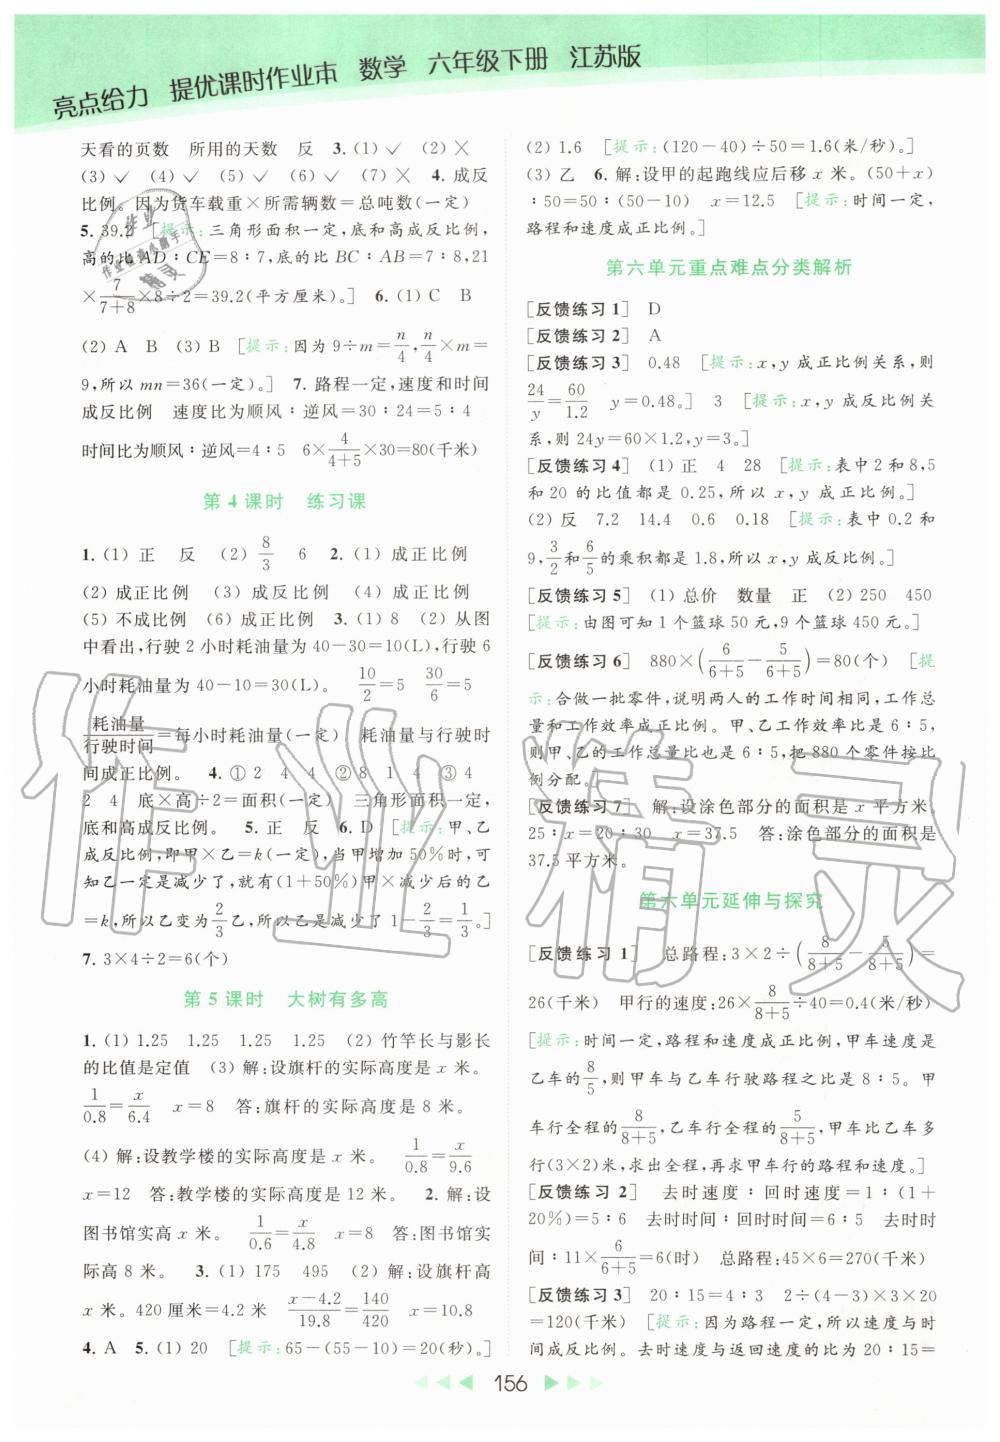 亮点给力 提优课时作业本 数学 六年级下册 江苏版
天看的页数 所用的天数 反 3. (1) ✓ (2) ✕
(3) ✓ (4) ✓ (5) ✓ (6) ✓ (7) ✕ 4. 成反
比例。因为货车载重×所需辆数=总吨数(一定)
5. 39.2 [提示:三角形面积一定,底和高成反比例,
高的比 AD∶CE=8∶7,底的比 AB∶BC=7∶8,21
×7/(7+8)×8÷2=39.2(平方厘米)。] 6. (1) C B
(2) A B (3) B [提示:因为 9÷m=n/4,m/4×n/4=
9,所以 mn=36(一定)。] 7. 路程一定,速度和时间
成反比例 速度比为顺风∶逆风=30∶24=5∶4
时间比为顺风∶逆风=4∶5 6×4/(4+5)×30=80(千米)
第 4 课时 练习课
1. (1) 正 反 (2) 8/3 6 2. (1) 成正比例
(2) 成正比例 (3) 成反比例 (4) 成正比例
(5) 不成比例 (6) 成正比例 3. (1) 8 (2) 从图
中看出,行驶 2 小时耗油量为 40-30=10(L),行驶 6
小时耗油量为 40-10=30(L)。 10/2=5 30/6=5
耗油量/行驶时间=每小时耗油量(一定) 耗油量与行驶时
间成正比例。 4. ① 2 4 4 ② 8 1 4 ③ 4
2 4 底×高÷2=面积(一定) 三角形面积一定,
底和高成反比例。 5. 正 反 6. D [提示:甲、乙
成反比例,即甲×乙=k(一定),当甲增加 50%时,可
知乙一定是减少了,就有(1+50%)甲×减少后的乙
=k,所以乙变为2/3乙,所以乙减少了 1-2/3=1/3。]
7. 3×4÷2=6(个)
第 5 课时 大树有多高
1. (1) 1.25 1.25 1.25 1.25 (2) 竹竿长与影长
的比值是定值 (3) 解:设旗杆的实际高度是 x 米。
1/0.8=x/6.4 x=8 答:旗杆的实际高度是 8 米。
(4) 解:设教学楼的实际高度是 x 米。 1/0.8=x/9.6
x=12 答:教学楼的实际高度是 12 米。 2. 解:设
图书馆实高 x 米。 1/0.6=x/4.8 x=8 答:图书馆实
际高 8 米。 3. (1) 175 495 (2) 解:设旗杆高
x 米。420 厘米=4.2 米 (x-4.2)/19.8=140/420 x=10.8
4. A 5. (1) 20 [提示:65-(55-10)=20(秒)。]
(2) 1.6 [提示:(120-40)÷50=1.6(米/秒)。]
(3) 乙 6. 解:设甲的起跑线应后移 x 米。(50+x)
∶50=50∶(50-10) x=12.5 [提示:时间一定,
路程和速度成正比例。]
第六单元重点难点分类解析
[反馈练习 1] D
[反馈练习 2] A
[反馈练习 3] 0.48 [提示:x,y 成正比例关系,则
24/y=60/1.2 y=0.48。] 3 [提示:x,y 成反比例关
系,则 24y=60×1.2,y=3。]
[反馈练习 4] (1) 正 4 28 [提示:表中 2 和 8,5
和 20 的比值都是 0.25,所以 x,y 成正比例。]
(2) 反 7.2 14.4 0.6 0.18 [提示:表中 0.2 和
9,3/2和6/5的乘积都是 1.8,所以 x,y 成反比例。]
[反馈练习 5] (1) 总价 数量 正 (2) 250 450
[提示:由图可知 1 个篮球 50 元,9 个篮球 450 元。]
[反馈练习 6] 880×(6/(6+5)-5/(6+5))=80(个) [提
示:合做一批零件,说明两人的工作时间相同,工作总
量和工作效率成正比例。甲、乙工作效率比是 6∶5,
则甲、乙的工作总量比也是 6∶5,把 880 个零件按比
例分配。]
[反馈练习 7] 解:设涂色部分的面积是 x 平方米。
25∶x=20∶30 x=37.5 答:涂色部分的面积是
37.5 平方米。
第六单元延伸与探究
[反馈练习 1] 总路程:3×2÷(8/(8+5)-5/(8+5))=
26(千米) 甲行的速度:26×8/(8+5)÷40=0.4(米/秒)
[提示:时间一定,路程和速度成正比例,甲车速度是
乙车的8/5,则甲车与乙车行驶路程之比是 8∶5。甲
车行全程的8/(8+5),乙车行全程的5/(8+5),甲车比乙车多
行(3×2)米,求出全程,再求甲车行的路程和速度。]
[反馈练习 2] 去时速度∶回时速度=1∶(1+
20%)=5∶6 去时时间∶回时时间=6∶5 去时时
间:11×6/(6+5)=6(时) 总路程:45×6=270(千米)
[反馈练习 3] 20∶15=4∶3 2÷(4-3)×3×20
=120(千米) [提示:因为路程一定,所以速度与时
间成反比例。去时速度与返回速度的比为 20∶15=
156
作业精灵